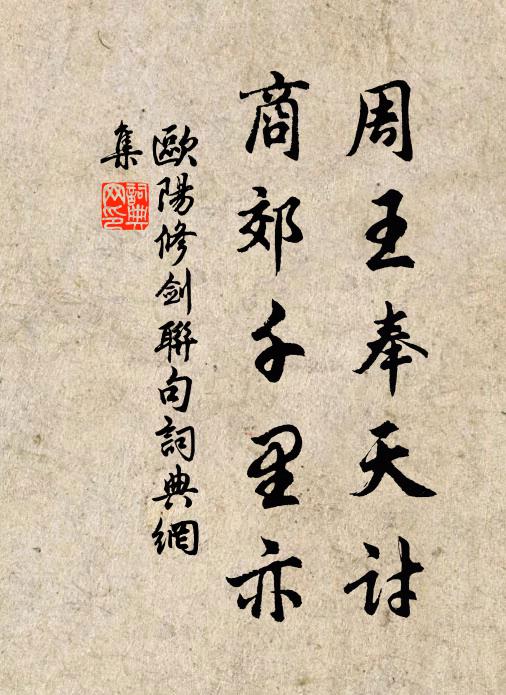 周王奉天討
商郊千里亦
歐陽修劍聯句詞典網
集
詞典网印